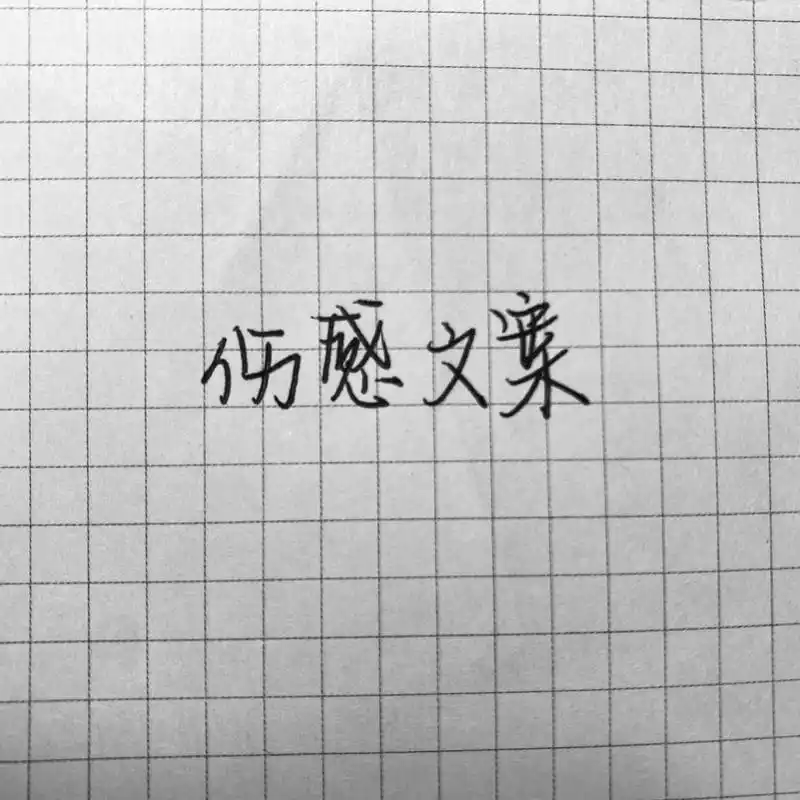 伤感文案